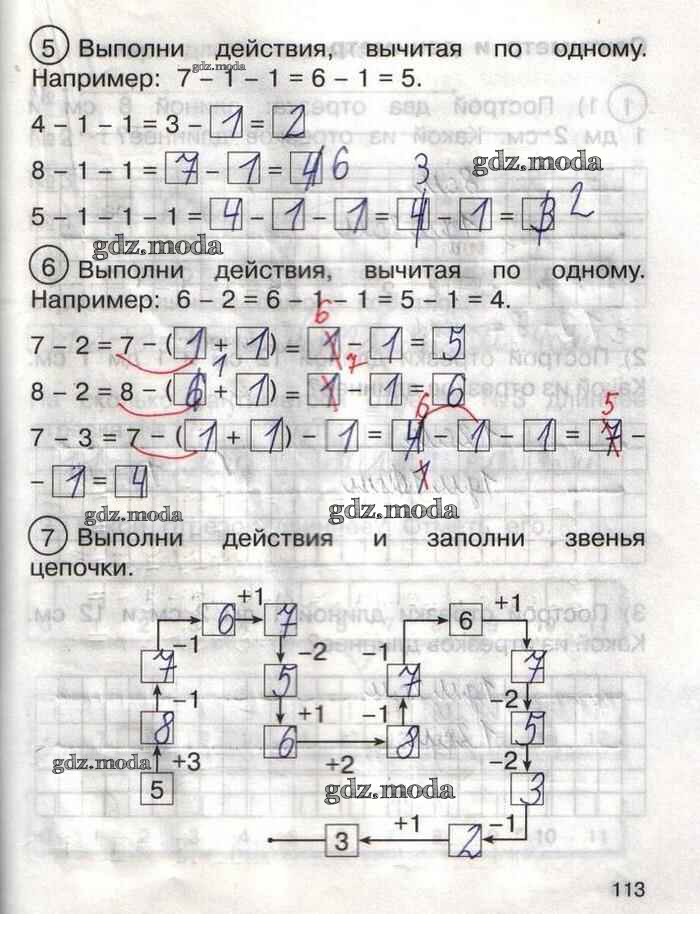 5 Выполни действия, вычитая по одному.
Например: 7 – 1 – 1 = 6 – 1 = 5.
gdz.moda
4 – 1 – 1 = 3 – 1 = 2
8 – 1 – 1 = 7 – 1 = 4 6
3
gdz.moda
5 – 1 – 1 – 1 = 4 – 1 – 1 = 4 – 1 = 3 2
gdz.moda
6 Выполни действия, вычитая по одному.
Например: 6 – 2 = 6 – 1 – 1 = 5 – 1 = 4.
6
7 – 2 = 7 – (1 + 1) = 1 – 1 = 5
1 7
8 – 2 = 8 – (6 + 1) = 1 – 1 = 6
6 5
7 – 3 = 7 – (1 + 1) – 1 = 4 – 1 – 1 = 7 –
1
– 1 = 4
gdz.moda
gdz.moda
7 Выполни действия и заполни звенья
цепочки.
+1 +1
6 7 6
–1 –2 –1
7 5 7 7
–1 +1 –1 –2
8 6 8 5
gdz.moda +3 +2 –2
5 gdz.moda 3
+1 –1
3 2
113